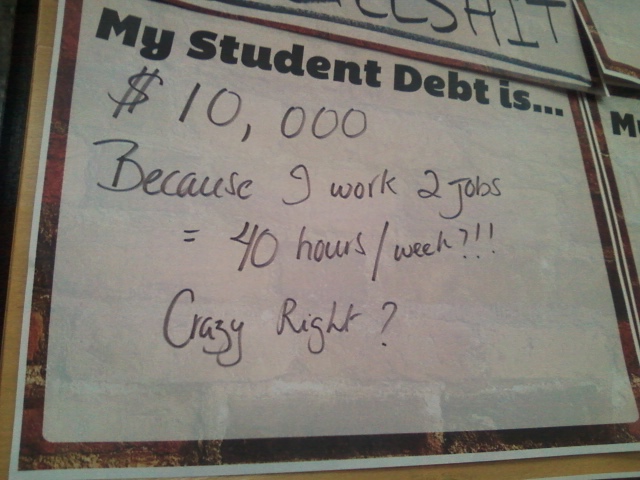 My Student Debt is...
$ 10,000
Because I work 2 jobs
= 40 hours/week?!!!
Crazy Right?